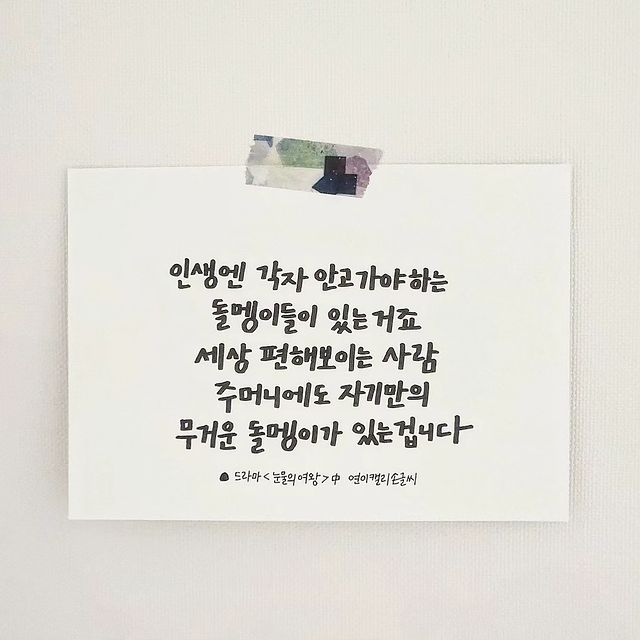 인생엔 각자 안고가야하는
돌멩이들이 있는거죠
세상 편해보이는 사람
주머니에도 자기만의
무거운 돌멩이가 있는겁니다
드라마 <눈물의여왕> 中 연이캘리손글씨